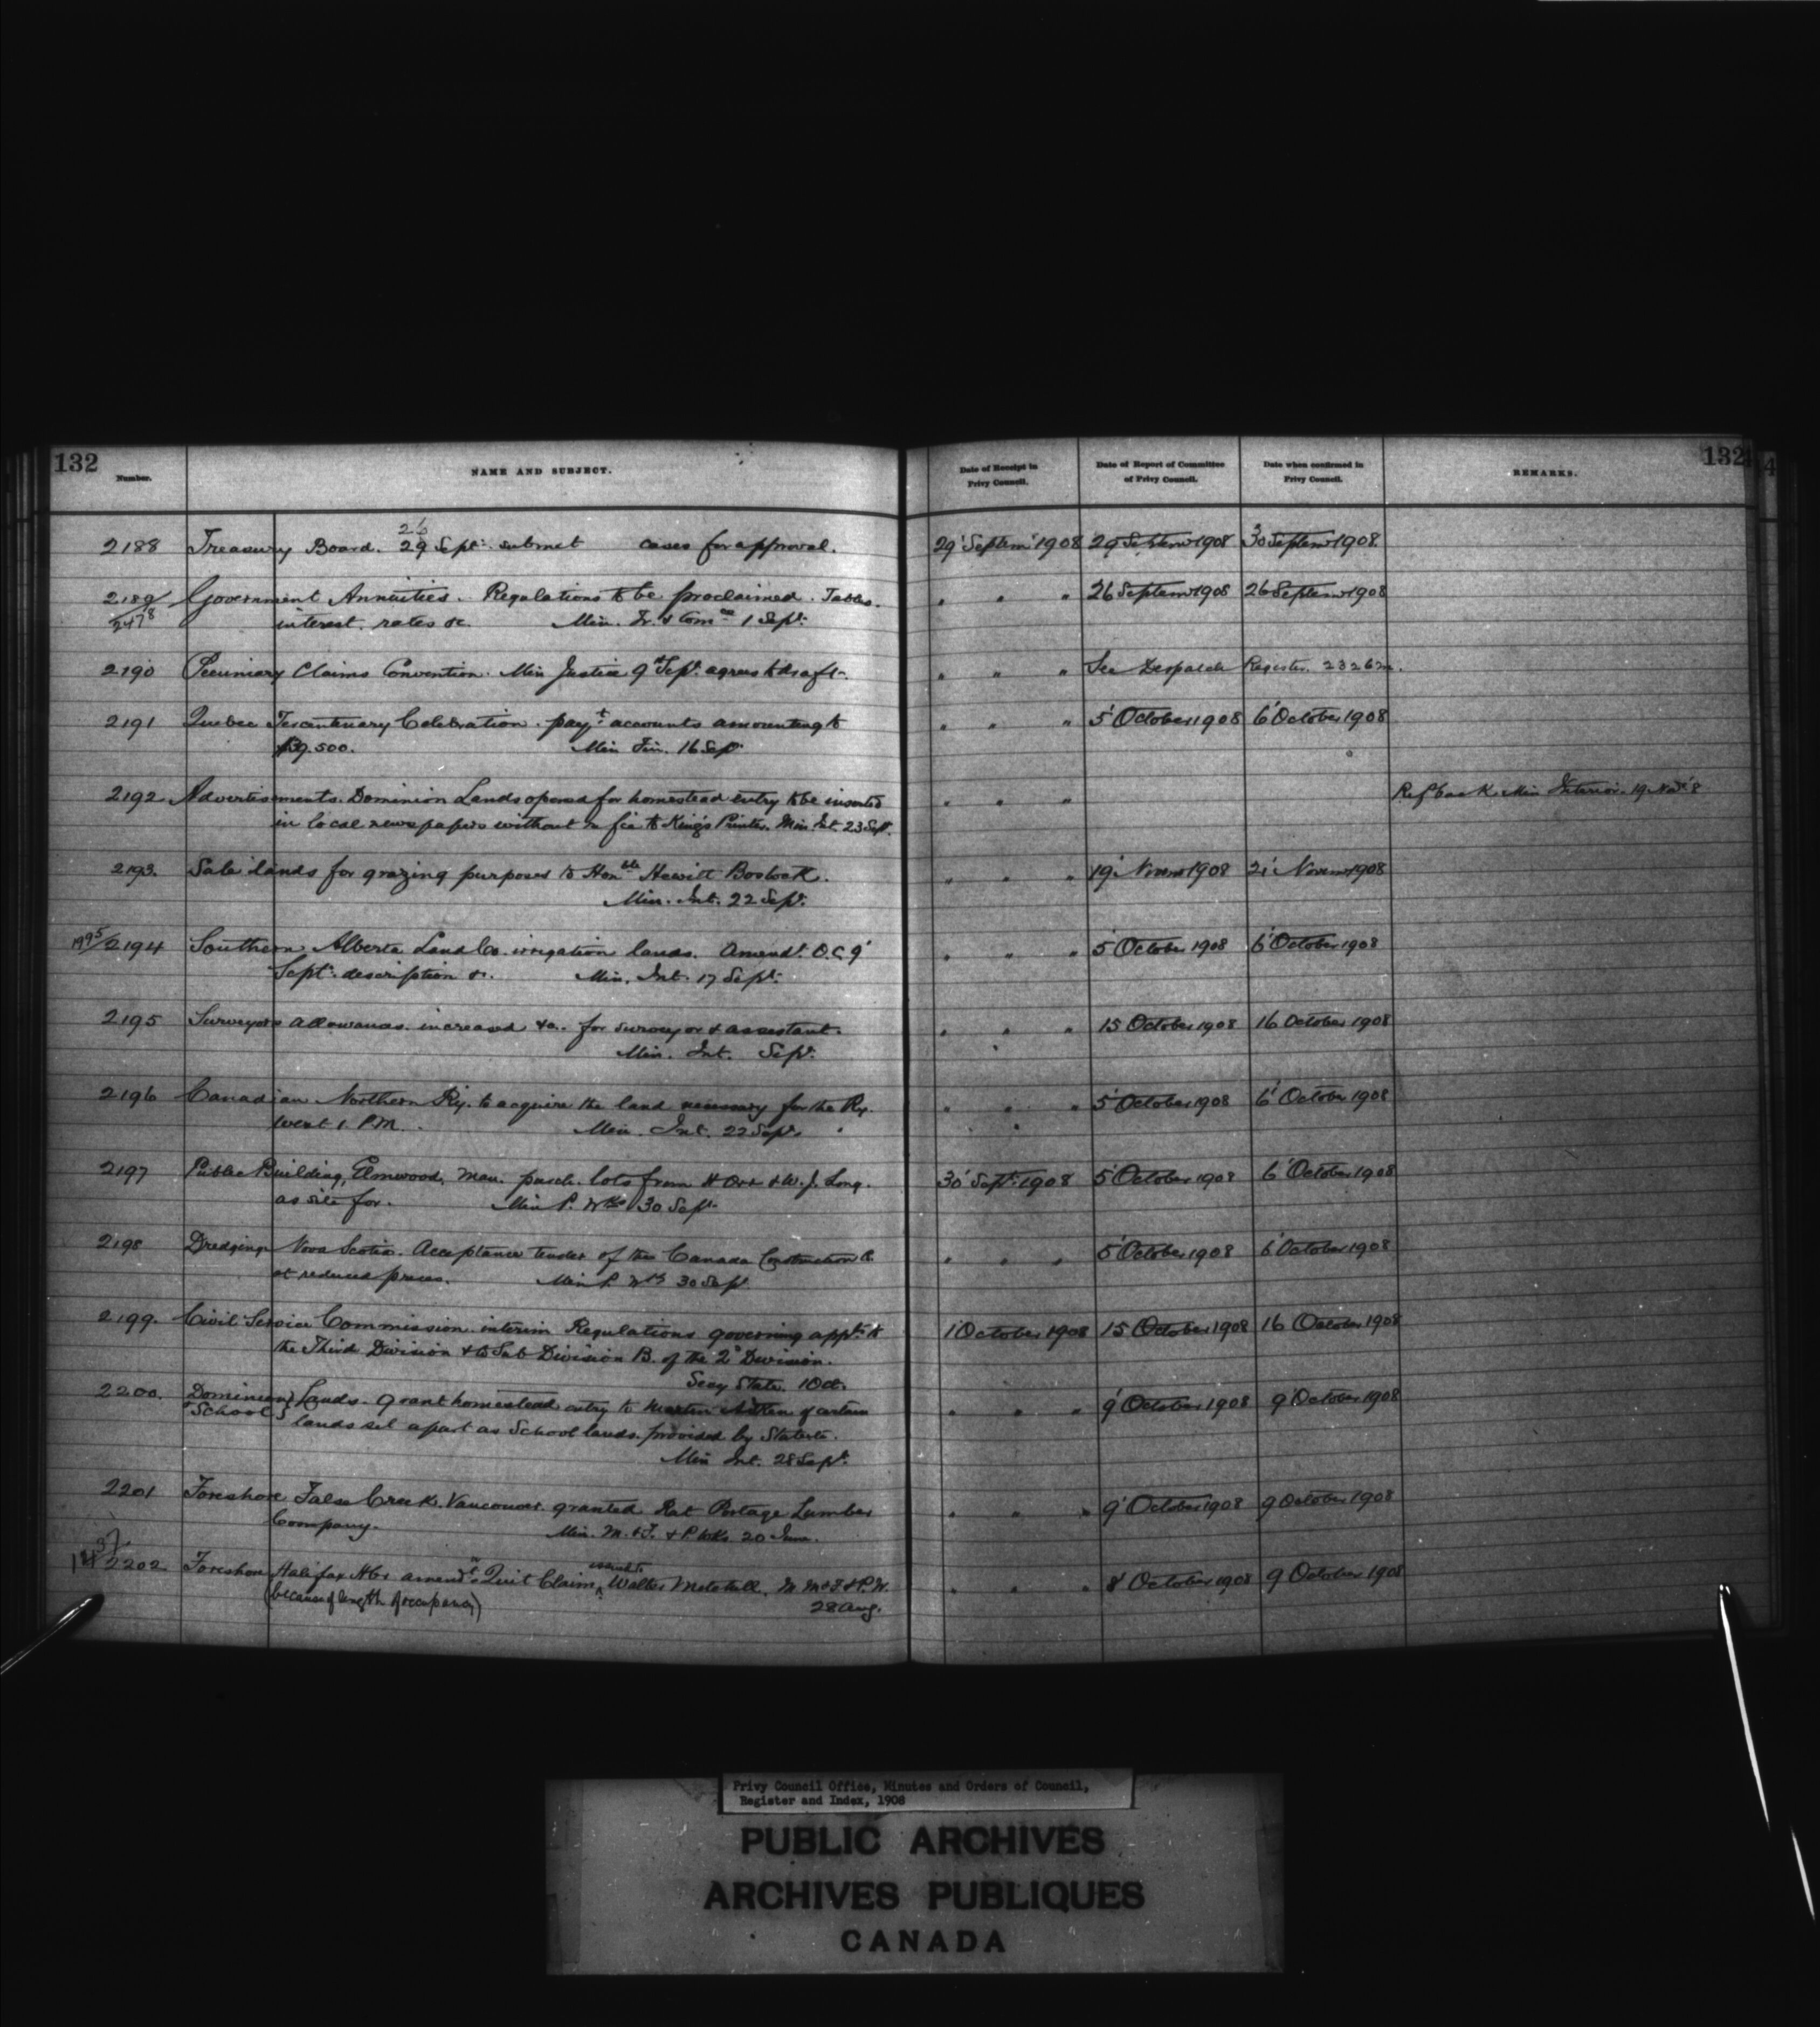 132
Number.
NAME AND SUBJECT.
Date of Receipt in
Privy Council.
Date of Report of Committee
of Privy Council.
Date when confirmed in
Privy Council.
REMARKS.
132
26
2188 Treasury Board. 29 Sept: submit cases for approval. 29' Septem' 1908 29 Septemr 1908 30 Septemr 1908.
2189 Government Annuities. Regulations to be proclaimed. Tables. " " " 26 Septemr 1908 26 Septemr 1908
2478 interest, rates &c. Min. Tr. & Comce 1 Sept:
2190 Pecuniary Claims Convention. Min Justice 9 Sept. agrees to draft. " " " See Despatch Register. 2326
2191 Quebec Tercentenary Celebration. payt accounts amounting to " " " 5' October 1908 6' October 1908
$39.500. Min Fin. 16 Sep
2192 Advertisements. Dominion Lands opened for homestead entry to be inserted " " " Ref back Min Interior 19 Nov 8
in local newspapers without to King's Printer. Min. Int. 23 Sept.
2193. Sale lands for grazing purposes to Honble Hewitt Bostock. " " " 19' Novemr 1908 21' Novemr 1908
Min. Int. 22 Sept.
1995/2194 Southern Alberta Land Co. irrigation lands. Amendt. O.C. 9' " " " 5' October 1908 6' October 1908
Sept: description &c. Min. Int. 17 Sept:
2195 Surveyors allowances increased &c. for surveyor & assistant. " " " 15 October 1908 16 October 1908
Min. Int. Sept:
2196 Canadian Northern Ry. to acquire the land necessary for the Ry. " " " 5' October 1908 6' October 1908
west 1. P.M. Min. Int. 22 Sept.
2197 Public Building, Elmwood, Man. purch. lots from H Orr & W. J. Long. 30' Sept: 1908 5' October 1908 6' October 1908
as site for. Min P. Wks 30 Sept.
2198 Dredging Nova Scotia. Acceptance tender of the Canada Construction Co. " " " 5' October 1908 6' October 1908
at reduced prices. Min P. Wks 30 Sept
2199. Civil Service Commission interim Regulations governing appts to 1 October 1908 15 October 1908 16 October 1908
the Third Division & to Sub Division B. of the 2d Division.
Secy State. 1 Oct.
2200. Dominion Lands. Grant homestead entry to Martin Aitken of certain " " " 9' October 1908 9 October 1908
& School lands set apart as School lands. provided by Statute.
Min Int. 28 Sept.
2201 Foreshore False Creek. Vancouver. granted Rat Portage Lumber " " " 9' October 1908 9 October 1908
Company. Min. M. & F. & P. Wks. 20 June.
2202 Foreshore Halifax Hbr amendt Quit Claim Walter Mitchell. M. M & F & P.W. " " " 8' October 1908 9 October 1908
(because of length of occupancy) 28 Aug.
Privy Council Office, Minutes and Orders of Council,
Register and Index, 1908
PUBLIC ARCHIVES
ARCHIVES PUBLIQUES
CANADA